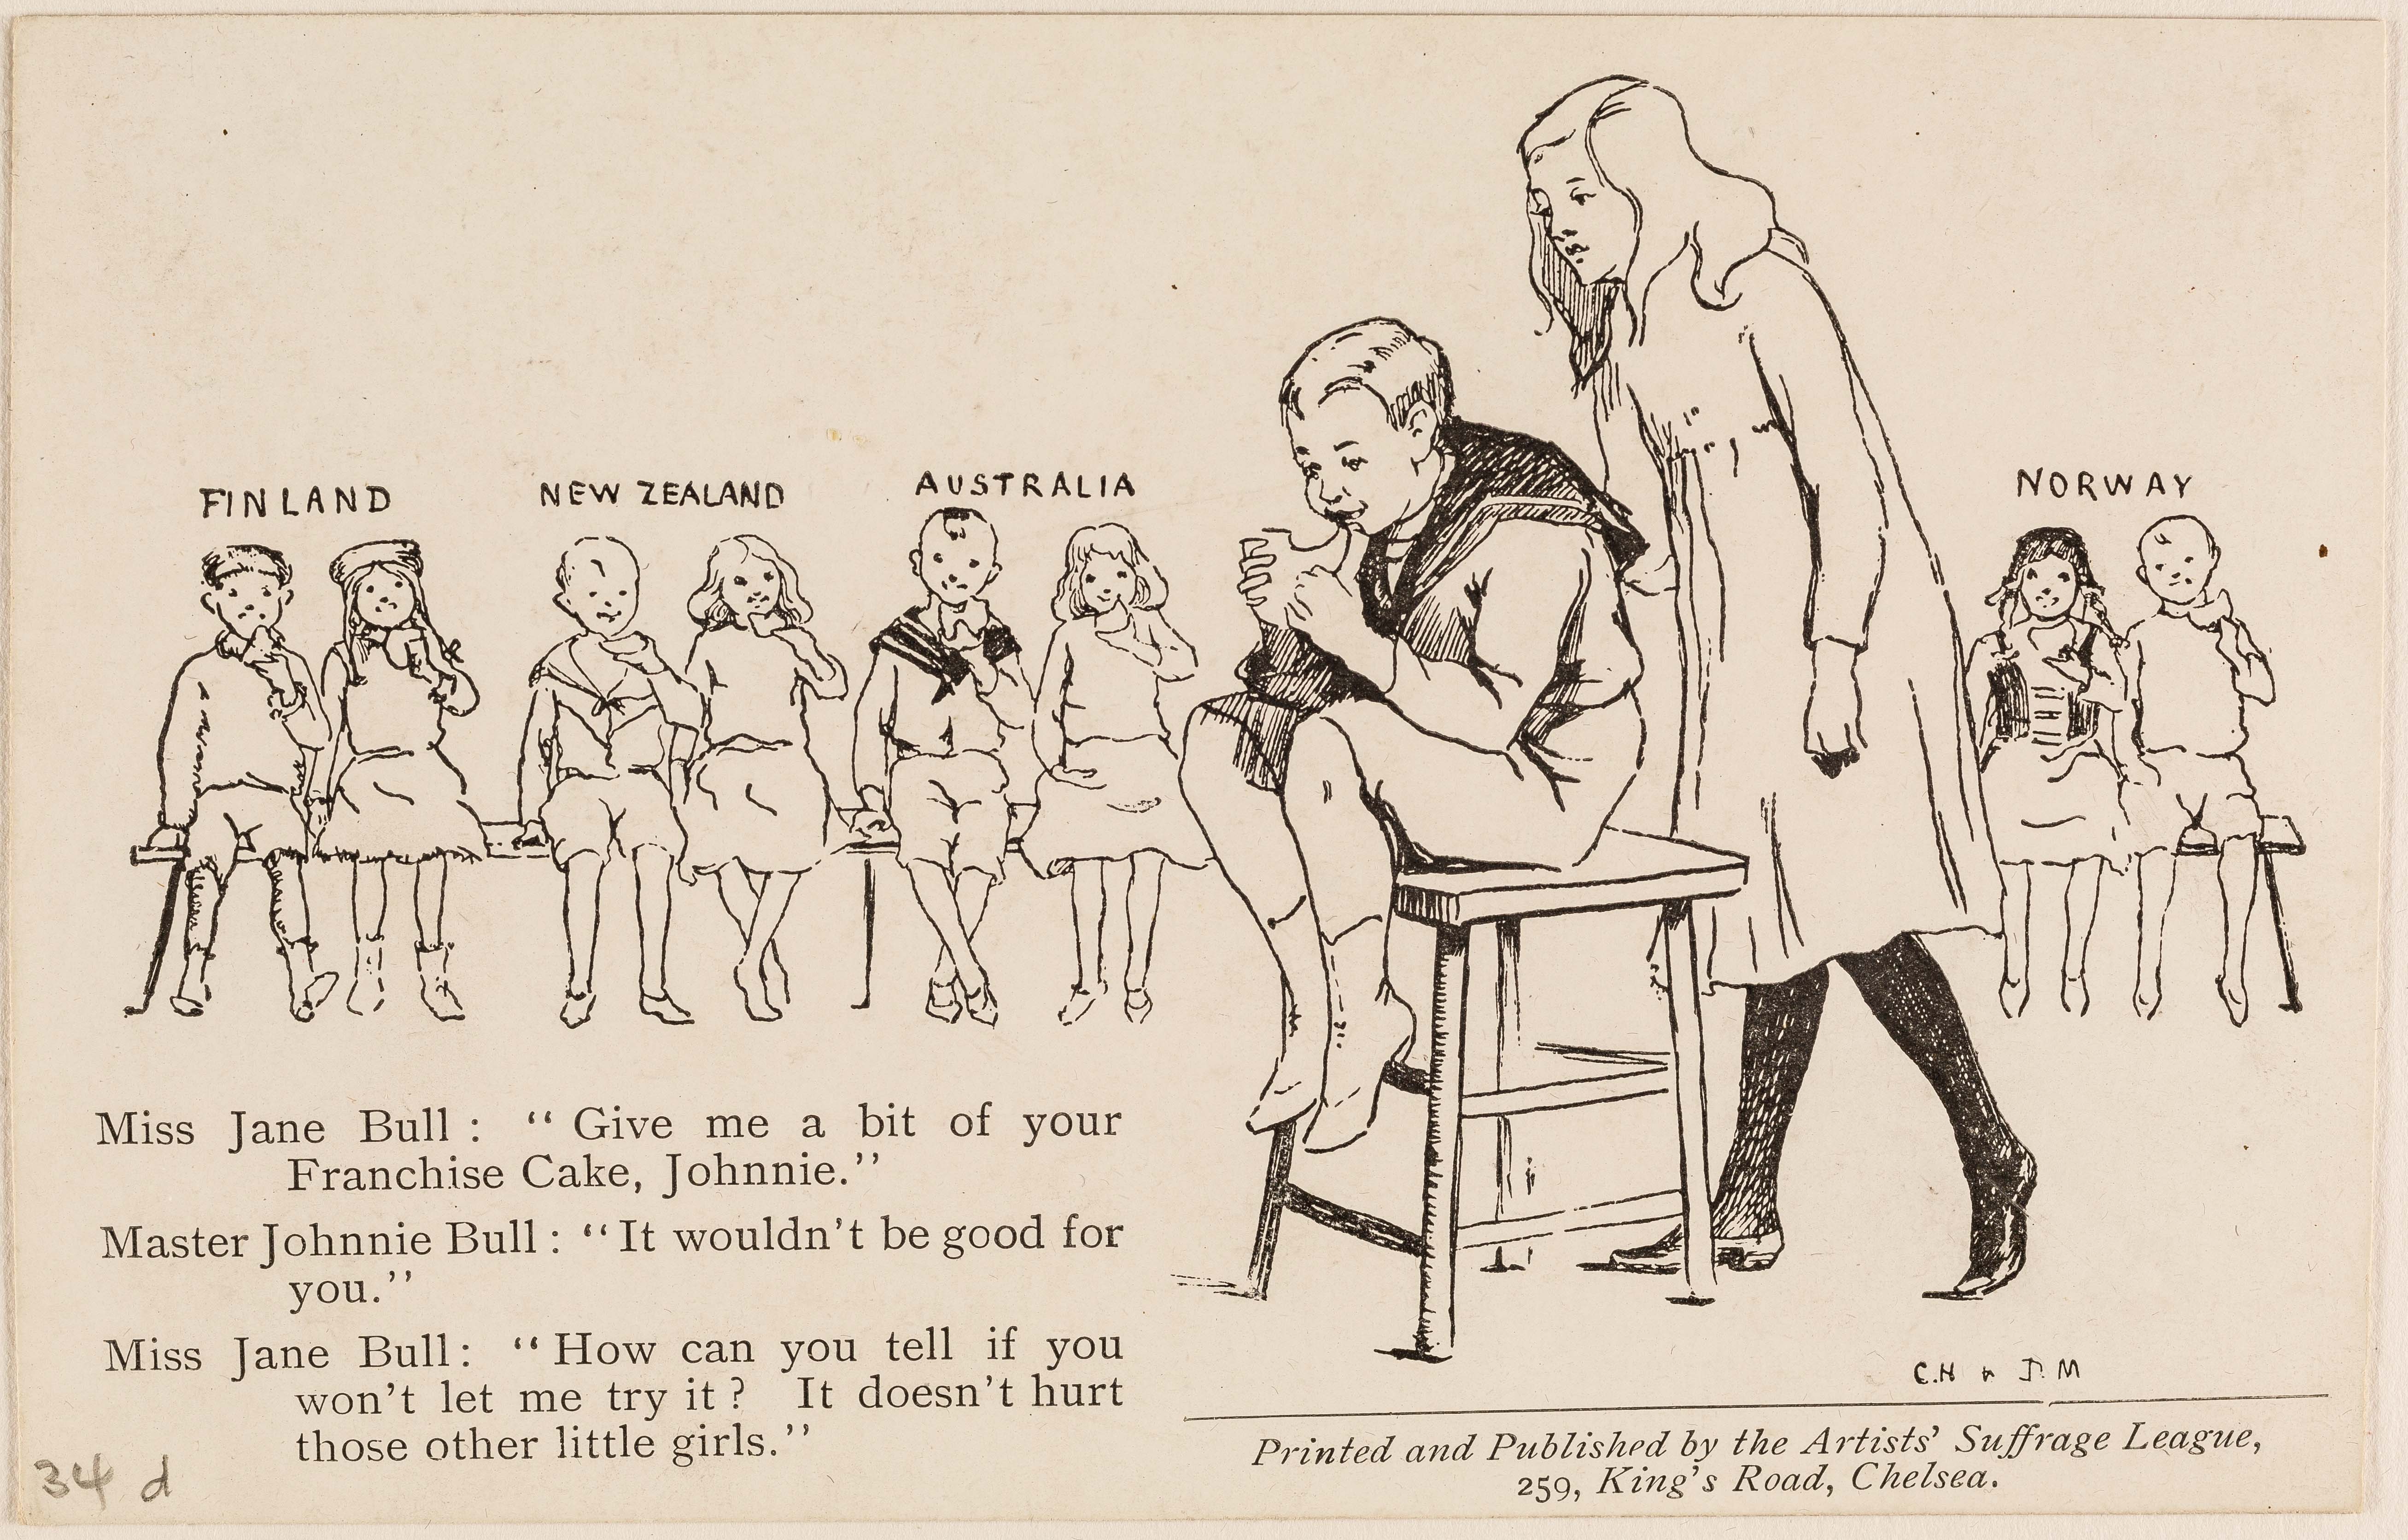 FINLAND
NEW ZEALAND
AUSTRALIA
NORWAY
Miss Jane Bull: "Give me a bit of your
Franchise Cake, Johnnie."
Master Johnnie Bull: "It wouldn't be good for
you."
Miss Jane Bull: "How can you tell if you
won't let me try it? It doesn't hurt
those other little girls."
34 d
C.H & J.M
Printed and Published by the Artists' Suffrage League,
259, King's Road, Chelsea.